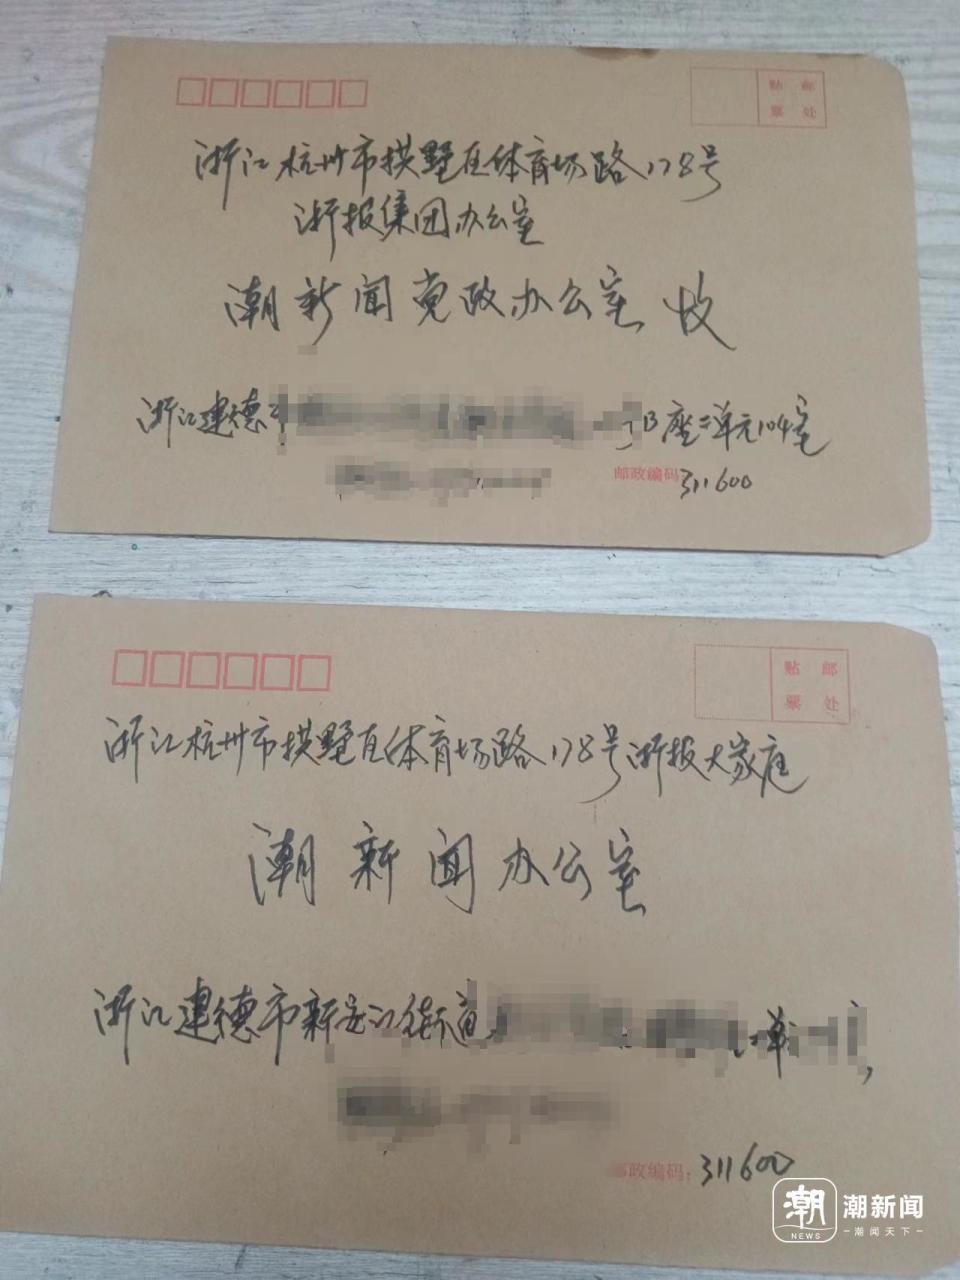 贴 邮
票 处
浙江杭州市拱墅区体育场路178号
浙报集团办公室
潮新闻党政办公室 收
浙江建德市
B座二单元104室
邮政编码:311600
贴 邮
票 处
浙江杭州市拱墅区体育场路178号浙报大家庭
潮新闻办公室
浙江建德市新安江街道
单
邮政编码:311600
潮
NEWS
潮新闻
潮闻天下